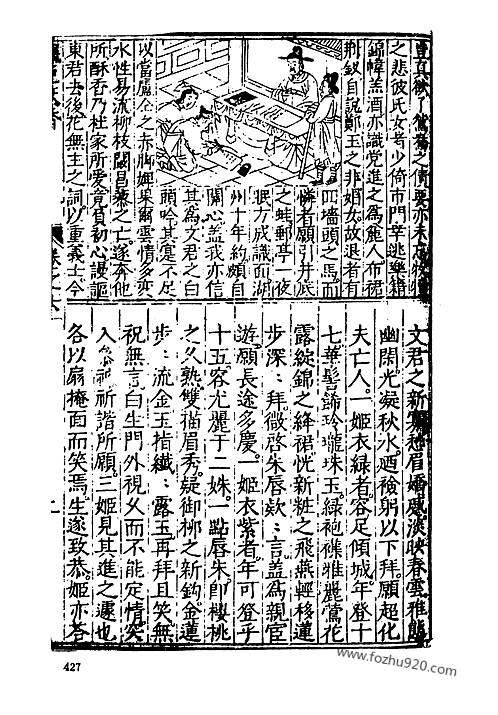 真欲了鴛鴦之債要亦未忘牧犢
之悲彼氏女者少倚市門寧逃樂籍
錦幃羔酒亦識党進之爲麄人布裙
荊釵自說鄭玉之非婚女故退者有
四墻頭之馬而
憐者願引井底
之蛙郵亭一夜
方成識面湖
州十年約頗自
關心盖我亦信
其爲文君之白
頭吟其寔不足
以當盧仝之赤脚婢果爾雲情多变
水性易流柳枝閙昌黎之亡遂奔他
所酥香乃杜家所愛竟負初心謾謳
東君去後花無主之詞以重義士今
文君之新寡愁眉嬌慼淡映春雲雅態
幽閑光凝秋水廼斂躬以下拜願超化
夫亡人一姬衣綠者容足傾城年登十
七華髻飾玲瓏珠玉綠袍襍雅麗鶯花
露綻錦之絳裙恍新粧之飛燕輕移蓮
步深：拜微啓朱唇欵：言盖爲親宦
遊願長途多慶一姬衣紫者年可登乎
十五容尤麗于二姝一點唇朱即櫻桃
之久熟雙描眉秀疑御柳之新鈎金蓮
步：流金玉指纖：露玉再拜且笑無
祝無言白生門外視久而不能定情突
入参神祈諧所願三姬見其進之遽也
各以扇掩面而笑焉生遂致恭姬亦荅
427
www.fozhu920.com